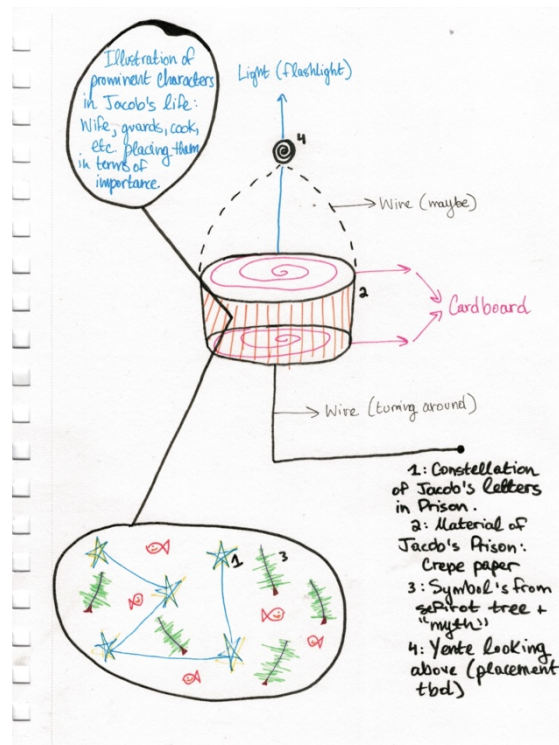 Illustration of
prominent characters
in Jacob's life:
Wife, guards, cook,
etc. placing them
in terms of
importance.
Light (flashlight)
4
Wire (maybe)
2
Cardboard
Wire (turning around)
1
3
1: Constellation
of Jacob's letters
in Prison.
2: Material of
Jacob's Prison:
Crepe paper
3: Symbol's from
sefirot tree +
"myth"
4: Yente looking
above (placement
tbd)